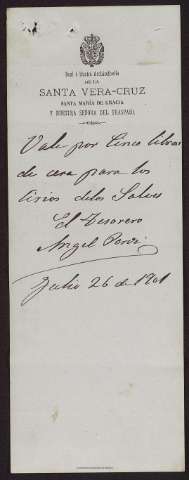 Real é Ilustre Archicofradía
DE LA
SANTA VERA-CRUZ
SANTA MARÍA DE GRACIA
Y NUESTRA SEÑORA DEL TRASPASO.
Vale por Cinco libras
de cera para los
cirios de las Salves
El Tesorero
Angel
Julio 26 de 1901